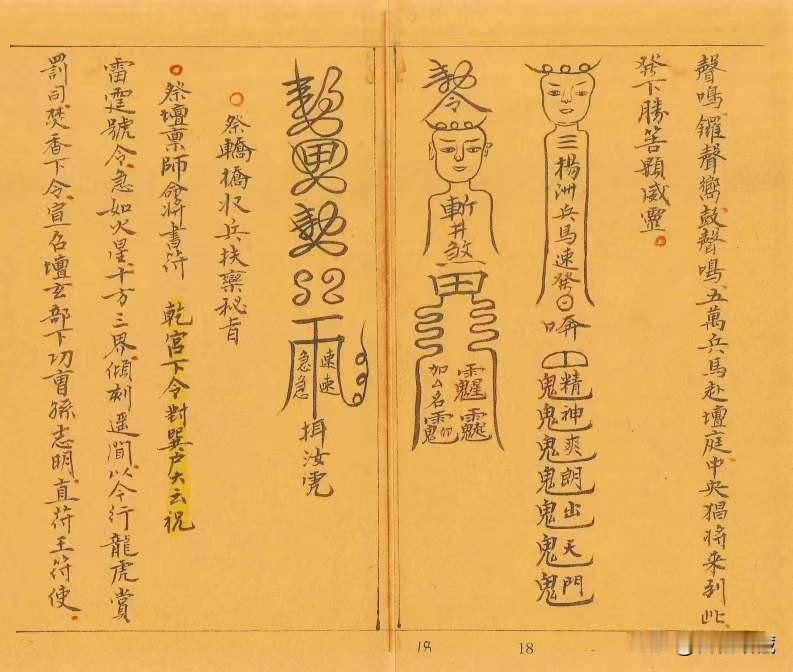 聲鳴鑼聲响鼓聲鳴五萬兵馬赴壇庭中央猖將来到此
發下勝筶顯威靈
三楊洲兵馬速發日
吽
精神爽朗出天門
鬼鬼鬼鬼鬼鬼鬼
勅令
斬井煞
田
加厶名
勅
勅
雨
速速
急急
祭轎橋収兵扶藥秘旨
祭壇稟師俞将書符 乾宮下令對巽户大云祝
雷霆號令急如火星十方三界傾刻遥聞以今行龍虎賞
罰司焚香下令宣召壇玄部下功曹孫志明直符王符使
18
18